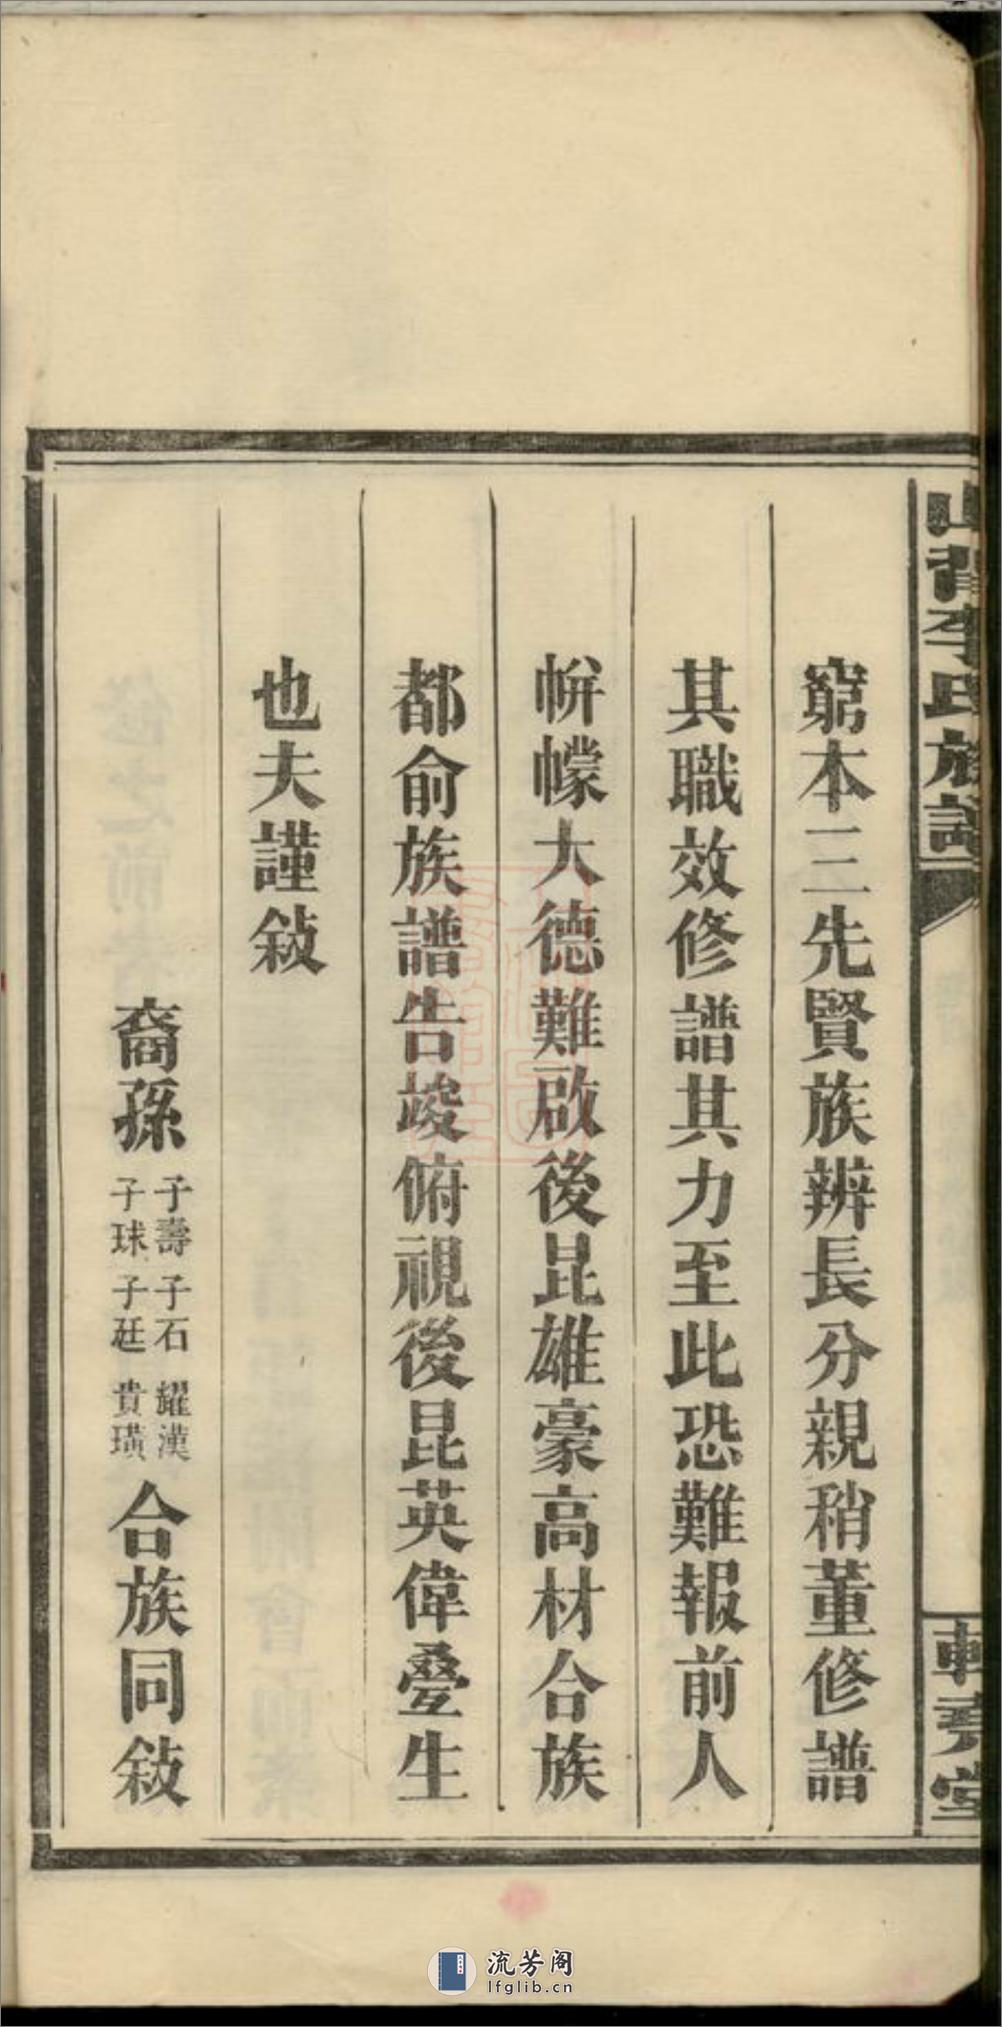 山背李氏族譜
窮本三先賢族辨長分親稍董修譜
其職效修譜其力至此恐難報前人
帡幪大德難啟後昆雄豪高材合族
都俞族譜告竣俯視後昆英偉叠生
也夫謹敍
裔孫 子壽 子石 耀漢 子球 子廷 貴璜 合族同敍
流芳阁
lfglib.cn